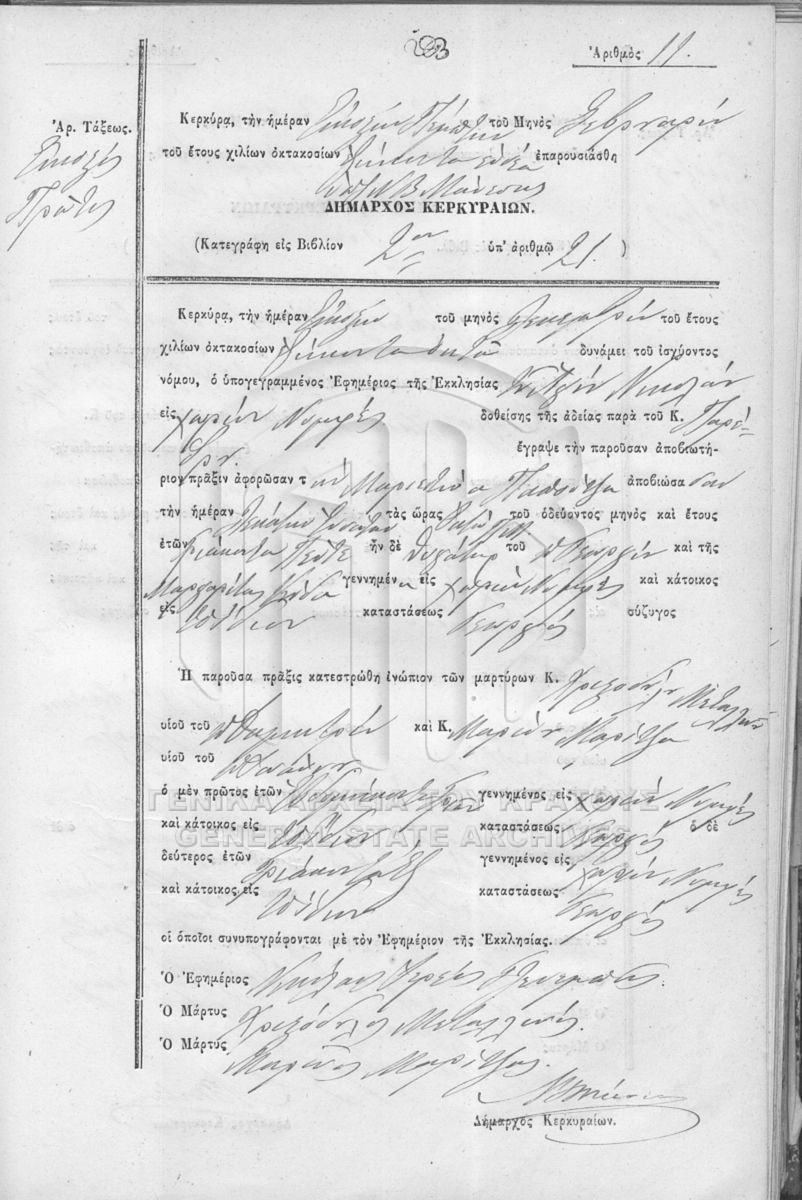 Ἀριθμὸς 11.
Ἀρ. Τάξεως.
Εἰκοστὸς
Πρῶτος
Κερκύρᾳ, τὴν ἡμέραν Εἰκοστὴν Πέμπτην τοῦ Μηνὸς Φεβρουαρίου
τοῦ ἔτους χιλίων ὀκτακοσίων ἐπαρουσιάσθη
ΔΗΜΑΡΧΟΣ ΚΕΡΚΥΡΑΙΩΝ.
(Κατεγράφη εἰς Βιβλίον 2ον ὑπ' ἀριθμῷ 21.)
Κερκύρᾳ, τὴν ἡμέραν Εἰκοστὴν τοῦ μηνὸς τοῦ ἔτους
χιλίων ὀκτακοσίων ὀκτὼ δυνάμει τοῦ ἰσχύοντος
νόμου, ὁ ὑπογεγραμμένος Ἐφημέριος τῆς Ἐκκλησίας Νικολάου
εἰς χωρίον Νυμφὲς δοθείσης τῆς ἀδείας παρὰ τοῦ Κ. Παρέ-
δρου ἔγραψε τὴν παροῦσαν ἀποβιωτή-
ριον πρᾶξιν ἀφορῶσαν τ ὴν ἀποβιώσα σαν
τὴν ἡμέραν Δεκάτην τὰς ὥρας τοῦ ὁδεύοντος μηνὸς καὶ ἔτους
ἐτῶν Τριάκοντα Πέντε ἦν δὲ θυγάτηρ τοῦ π Γεωργίου καὶ τῆς
Μαργαρίτας γεννημέν η εἰς χωρίον Νυμφὲς καὶ κάτοικος
εἰς τὸ ἴδιον καταστάσεως Γεωργὸς σύζυγος
Ἡ παροῦσα πρᾶξις κατεστρώθη ἐνώπιον τῶν μαρτύρων Κ. Χριστόδουλου Μεταλληνοῦ
υἱοῦ τοῦ π Δημητρίου καὶ Κ. Μαρίνου Μαρίτζα
υἱοῦ τοῦ
ὁ μὲν πρῶτος ἐτῶν γεννημένος εἰς χωρίον Νυμφὲς
καὶ κάτοικος εἰς τὸ ἴδιον καταστάσεως Γεωργὸς ὁ δὲ
δεύτερος ἐτῶν Τριάκοντα ἓξ γεννημένος εἰς χωρίον Νυμφὲς
καὶ κάτοικος εἰς τὸ ἴδιον καταστάσεως Γεωργὸς
οἱ ὁποῖοι συνυπογράφονται μὲ τὸν Ἐφημέριον τῆς Ἐκκλησίας.
Ὁ Ἐφημέριος Νικόλαος Ἱερεὺς
Ὁ Μάρτυς Χριστόδουλος Μεταλληνός.
Ὁ Μάρτυς Μαρῖνος Μαρίτζας.
Δήμαρχος Κερκυραίων.
ΓΕΝΙΚΑ ΑΡΧΕΙΑ ΤΟΥ ΚΡΑΤΟΥΣ
GENERAL STATE ARCHIVES